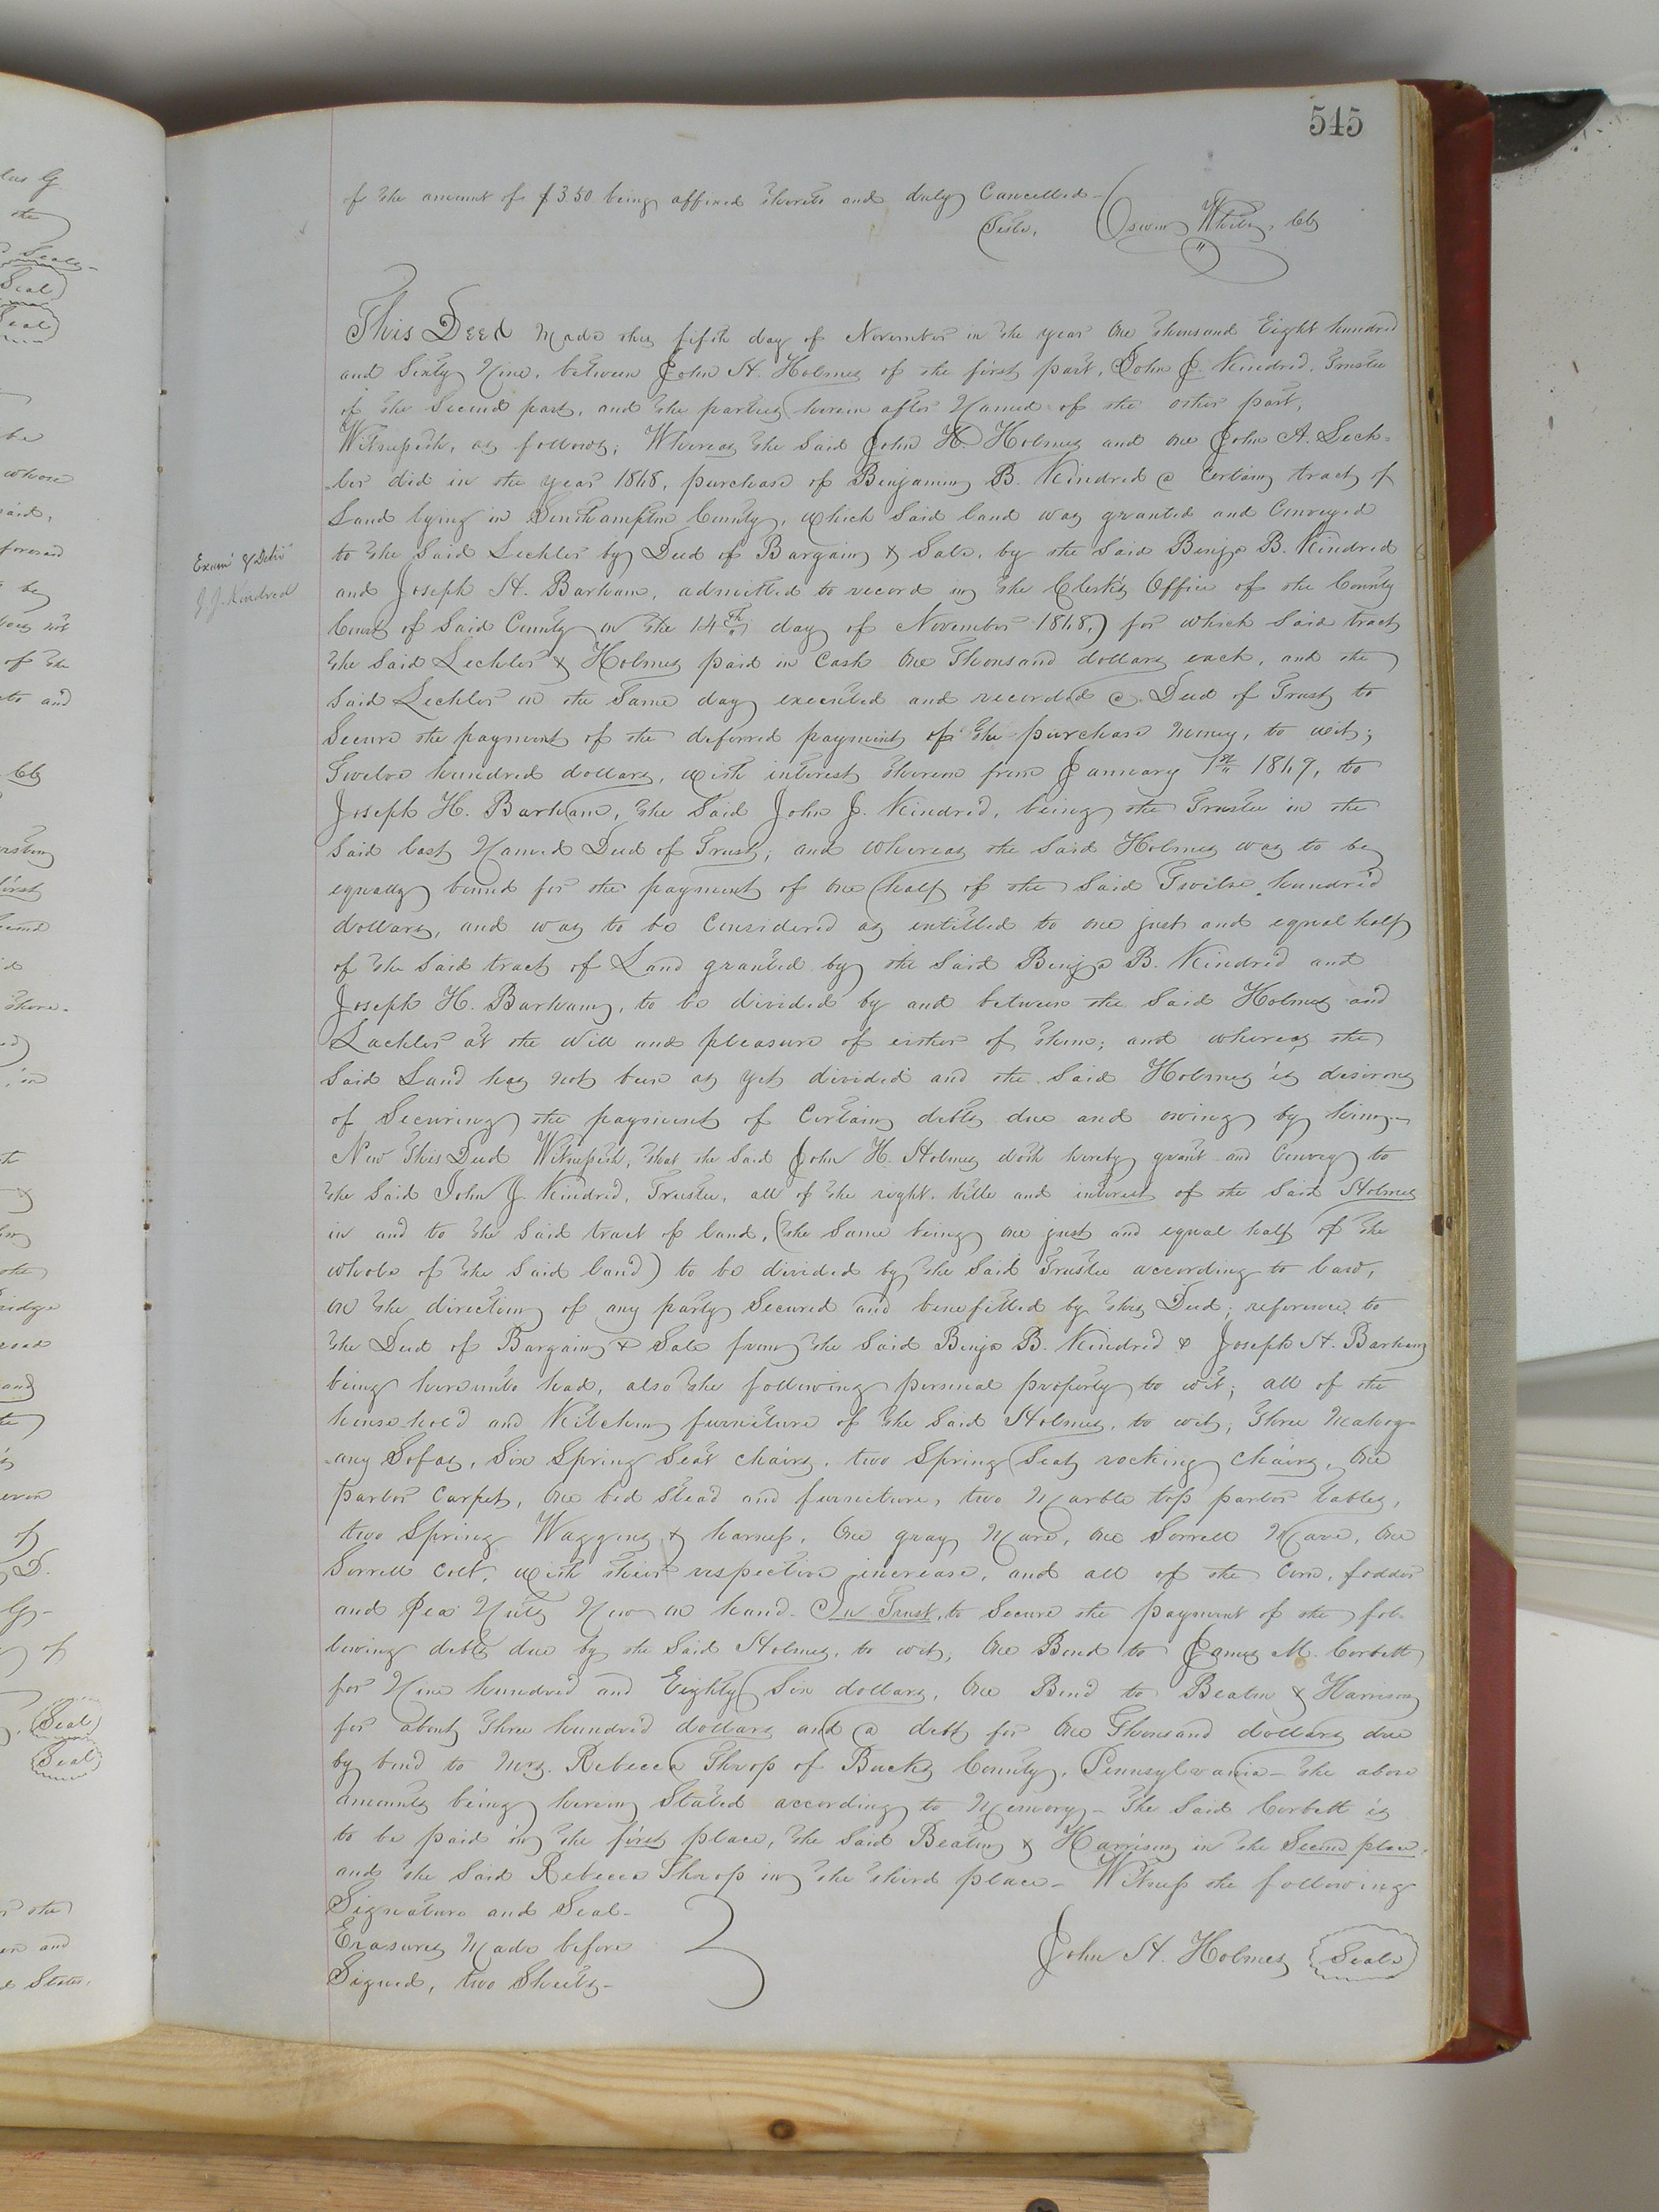 545
of the amount of $3.50 being affixed thereto and duly Cancelled—
Teste,
Exam'd & Deliv'd
J. J. Kindred
This Deed Made this fifth day of November in the year One thousand Eight hundred
and Sixty Nine, between John H. Holmes of the first part, John J. Kindred, Trustee
of the Second part, and the parties herein after Named of the other part,
Witnesseth, as follows; Whereas the Said John H. Holmes and one John A. Lech-
-ler did in the year 1868, purchase of Benjamin B. Kindred a Certain tract of
Land lying in Southampton County, which Said land was granted and Conveyed
to the Said Lechler by Deed of Bargain & Sale, by the Said Benja B. Kindred
and Joseph H. Barham, admitted to record in the Clerk's Office of the County
Court of Said County on the 14th day of November 1868,) for which Said tract
the Said Lechler & Holmes paid in Cash One Thousand dollars each, and the
Said Lechler on the Same day executed and recorded a Deed of Trust to
Secure the payment of the deferred payment of the purchase Money, to wit;
Twelve hundred dollars, with interest thereon from January 1st 1869, to
Joseph H. Barham, the Said John J. Kindred, being the Trustee in the
Said last Named Deed of Trust; and Whereas the Said Holmes was to be
equally bound for the payment of one half of the Said Twelve hundred
dollars, and was to be Considered as entitled to one just and equal half
of the Said tract of Land granted by the Said Benja B. Kindred and
Joseph H. Barham, to be divided by and between the Said Holmes and
Lechler at the Will and pleasure of either of them; and whereas the
Said Land has not been as yet divided and the Said Holmes is desirous
of Securing the payment of Certain debts due and owing by him—
Now this Deed Witnesseth, that the Said John H. Holmes doth hereby grant and Convey to
the Said John J. Kindred, Trustee, all of the right, title and interest of the Said Holmes
in and to the Said tract of land, (the Same being one just and equal half of the
whole of the Said land) to be divided by the Said Trustee according to law,
on the direction of any party Secured and benefitted by this Deed; reference to
the Deed of Bargain & Sale from the Said Benja B. Kindred & Joseph H. Barham
being hereunto had, also the following personal property to wit; all of the
household and Kitchen furniture of the Said Holmes, to wit; three Mahog-
-any Sofas, Six Spring Seat Chairs, two Spring Seat rocking Chairs, One
parlor Carpet, One bed Stead and furniture, two Marble top parlor tables,
two Spring Waggons & harness, One gray Mare, One Sorrell Mare, One
Sorrell Colt, with their respective increase, and all of the Corn, fodder
and Pea Nuts Now on hand. In Trust, to Secure the payment of the fol-
lowing debts due by the Said Holmes, to wit, One Bond to James M. Corbett
for Nine hundred and Eighty Six dollars, One Bond to Beaton & Harrison
for about three hundred dollars and a debt for One Thousand dollars due
by bond to Mrs. Rebecca Throp of Bucks County, Pennsylvania— the above
amounts being herein Stated according to Memory— The Said Corbett is
to be paid in the first place, the Said Beaton & Harrison in the Second place,
and the Said Rebecca Throp in the third place— Witness the following
Signature and Seal—
Erasures Made before
Signed, two Sheets—
John H. Holmes (Seal)